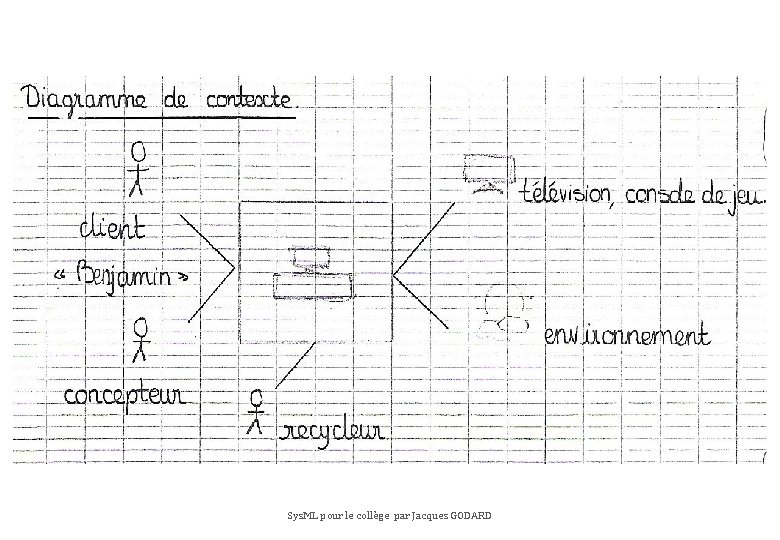 Diagramme de contexte.
télévision, console de jeu.
client
« Benjamin »
environnement
concepteur
recycleur
SysML pour le collège par Jacques GODARD